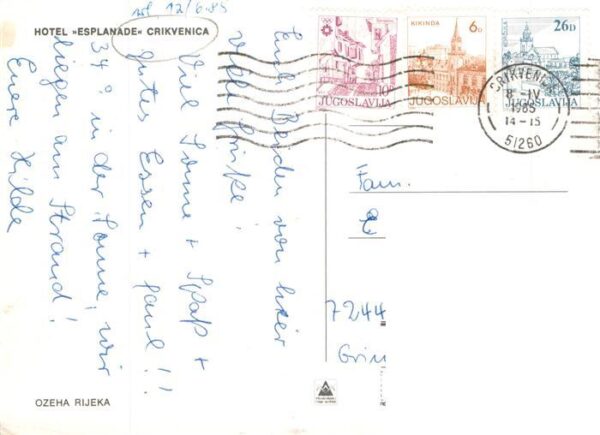 12/6.85
HOTEL »ESPLANADE« CRIKVENICA
Euch Beiden von hier
viele Grüße!
Viel Sonne + Spaß +
gutes Essen + faul!!
34° in der Sonne, wir
liegen am Strand!
Eure Hilde
OZEHA RIJEKA
10
JUGOSLAVIJA
KIKINDA
6D
JUGOSLAVIJA
26D
JUGOSLAVIJA
CRIKVEN
8-IV
1985
14-15
51260
Fam.
7244